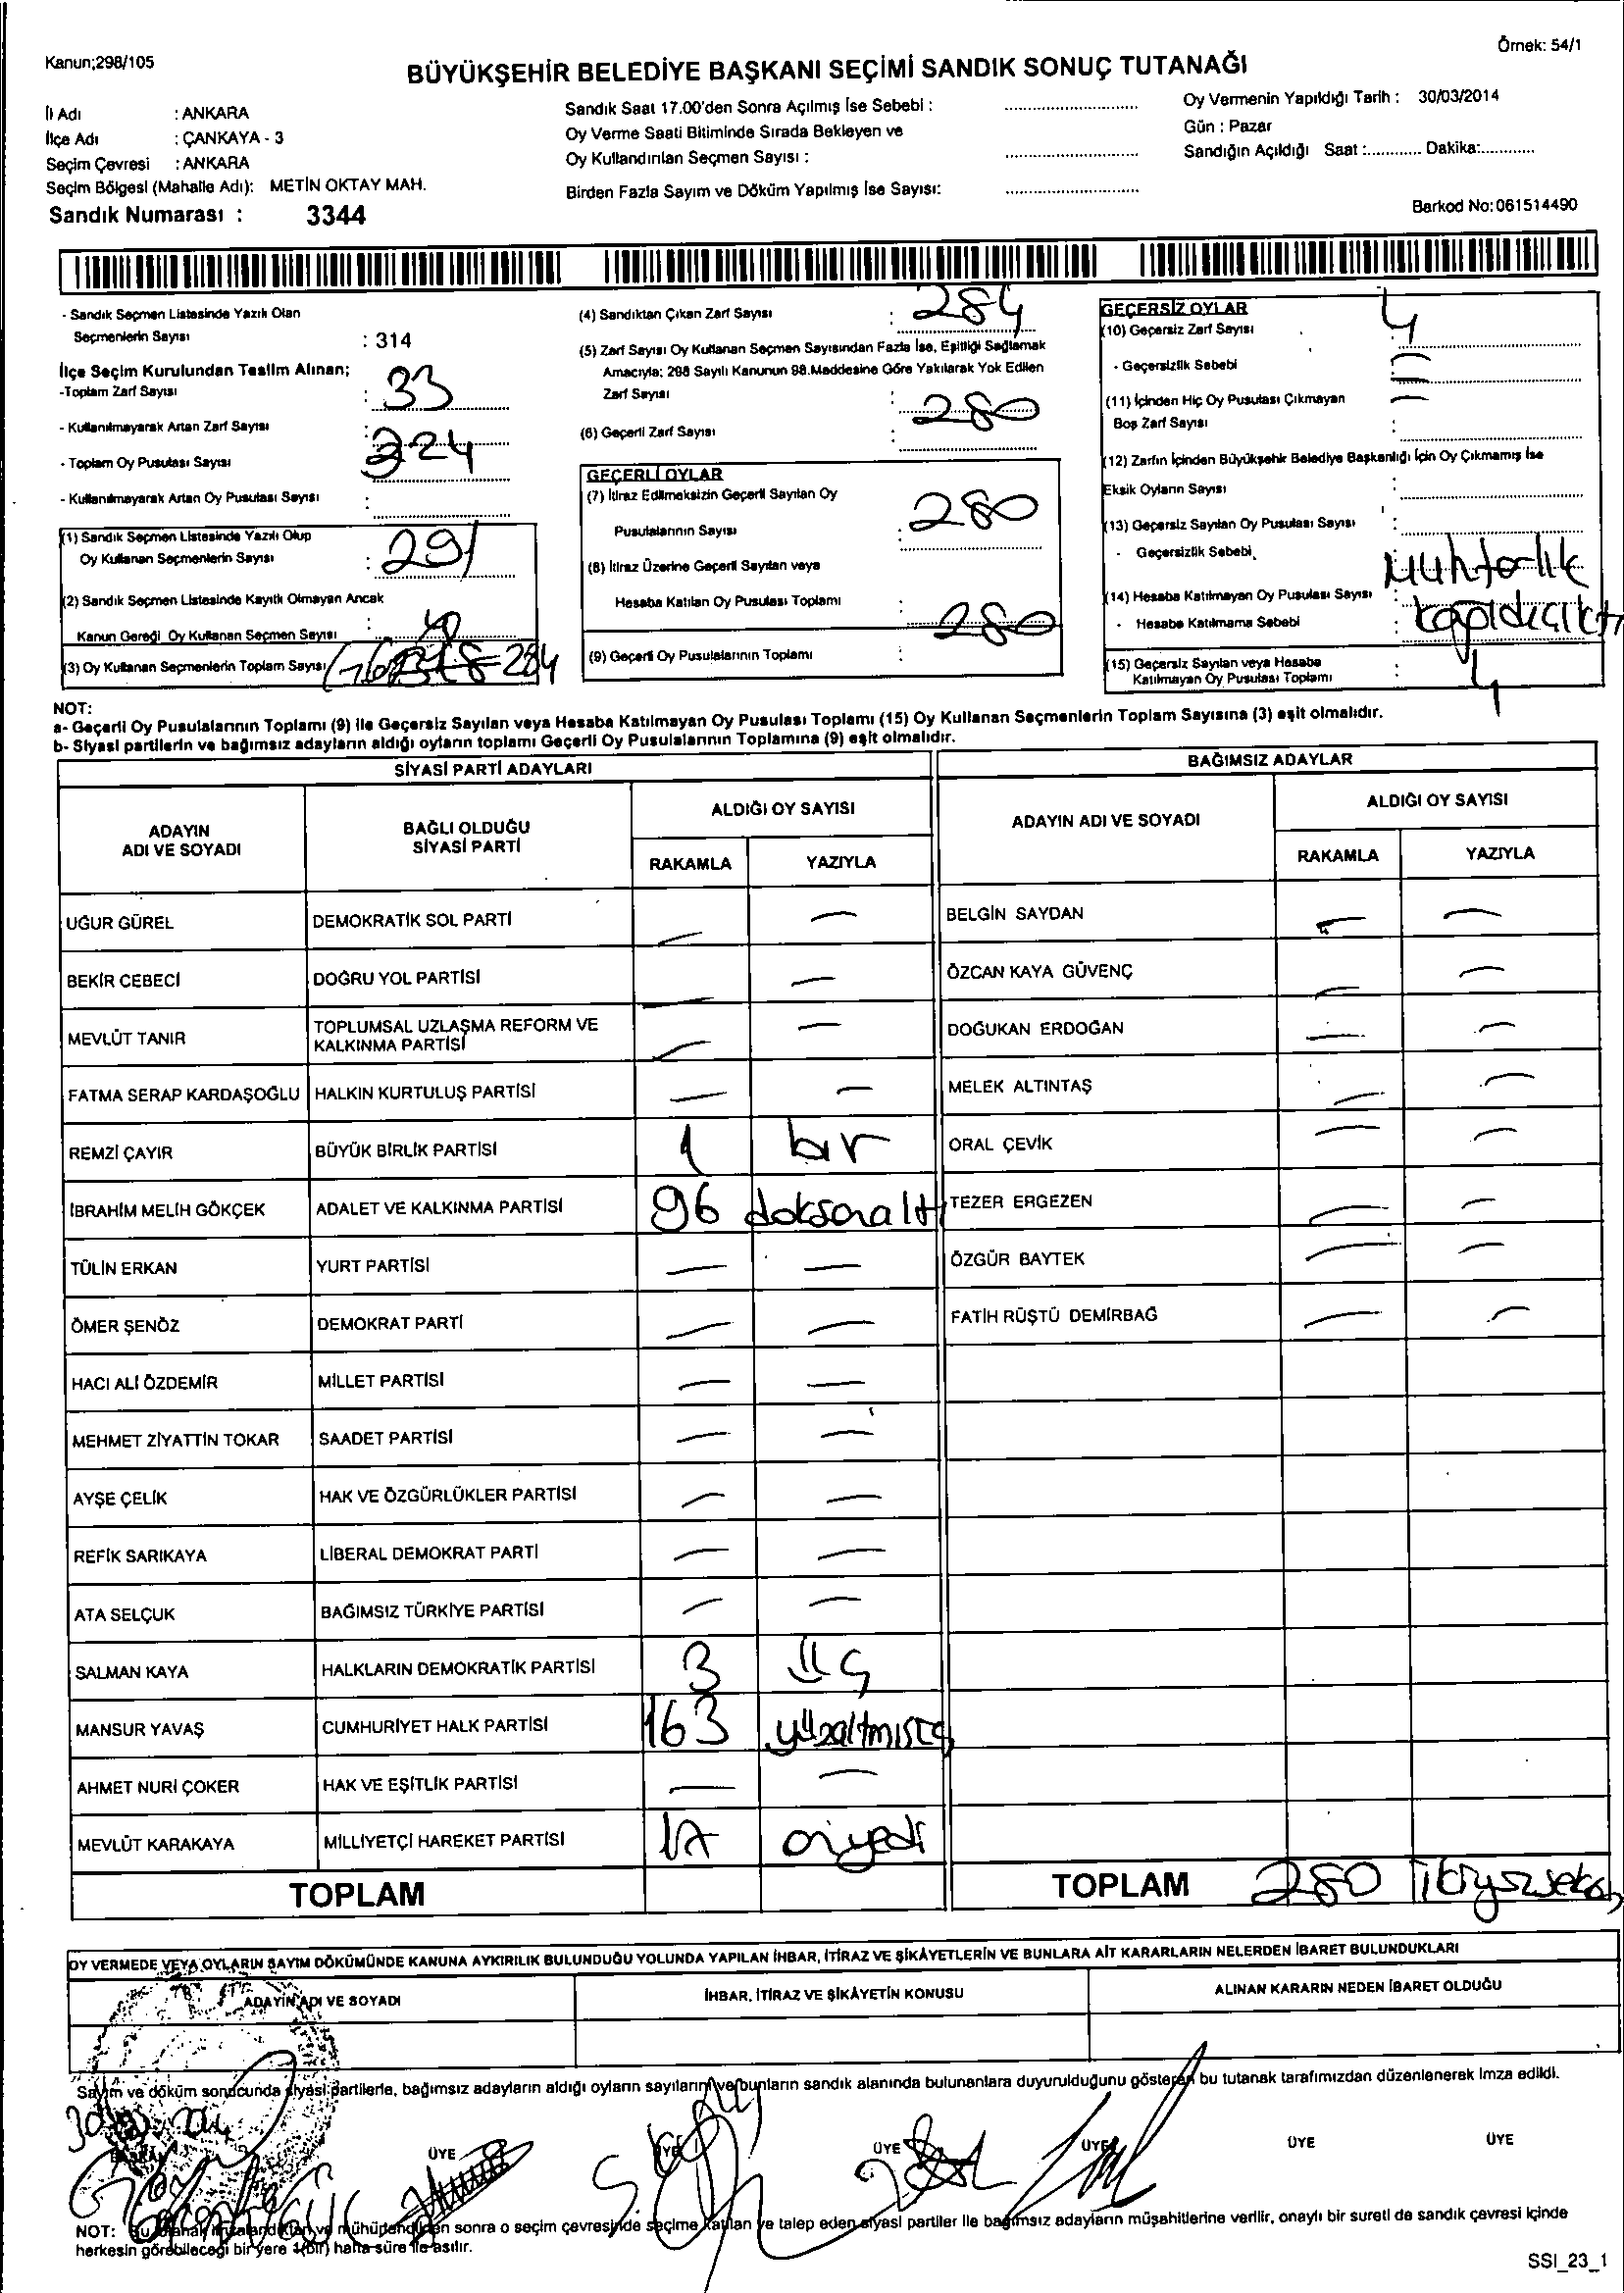 Kanun;298/105
Örnek: 54/1
BÜYÜKŞEHİR BELEDİYE BAŞKANI SEÇİMİ SANDIK SONUÇ TUTANAĞI
İl Adı : ANKARA
İlçe Adı : ÇANKAYA - 3
Seçim Çevresi : ANKARA
Seçim Bölgesi (Mahalle Adı): METİN OKTAY MAH.
Sandık Numarası : 3344
Sandık Saat 17.00'den Sonra Açılmış İse Sebebi :
Oy Verme Saati Bitiminde Sırada Bekleyen ve
Oy Kullandırılan Seçmen Sayısı :
Birden Fazla Sayım ve Döküm Yapılmış İse Sayısı:
Oy Vermenin Yapıldığı Tarih : 30/03/2014
Gün : Pazar
Sandığın Açıldığı Saat :............ Dakika:............
Barkod No:061514490
- Sandık Seçmen Listesinde Yazılı Olan
Seçmenlerin Sayısı : 314
İlçe Seçim Kurulundan Teslim Alınan;
-Toplam Zarf Sayısı : 33
- Kullanılmayarak Artan Zarf Sayısı :
- Toplam Oy Pusulası Sayısı 324
- Kullanılmayarak Artan Oy Pusulası Sayısı :
(1) Sandık Seçmen Listesinde Yazılı Olup
Oy Kullanan Seçmenlerin Sayısı : 291
(2) Sandık Seçmen Listesinde Kayıtlı Olmayan Ancak
Kanun Gereği Oy Kullanan Seçmen Sayısı :
(3) Oy Kullanan Seçmenlerin Toplam Sayısı 284
(4) Sandıktan Çıkan Zarf Sayısı : 284
(5) Zarf Sayısı Oy Kullanan Seçmen Sayısından Fazla İse, Eşitliği Sağlamak
Amacıyla; 298 Sayılı Kanunun 98.Maddesine Göre Yakılarak Yok Edilen
Zarf Sayısı :
(6) Geçerli Zarf Sayısı : 280
GEÇERLİ OYLAR
(7) İtiraz Edilmeksizin Geçerli Sayılan Oy
Pusulalarının Sayısı : 280
(8) İtiraz Üzerine Geçerli Sayılan veya
Hesaba Katılan Oy Pusulası Toplamı :
(9) Geçerli Oy Pusulalarının Toplamı : 280
GEÇERSİZ OYLAR
(10) Geçersiz Zarf Sayısı 4
- Geçersizlik Sebebi
(11) İçinden Hiç Oy Pusulası Çıkmayan
Boş Zarf Sayısı :
(12) Zarfın İçinden Büyükşehir Belediye Başkanlığı İçin Oy Çıkmamış İse
Eksik Oyların Sayısı :
(13) Geçersiz Sayılan Oy Pusulası Sayısı :
- Geçersizlik Sebebi Muhtarlık
(14) Hesaba Katılmayan Oy Pusulası Sayısı :
- Hesaba Katılmama Sebebi :
(15) Geçersiz Sayılan veya Hesaba
Katılmayan Oy Pusulası Toplamı : 4
NOT:
a- Geçerli Oy Pusulalarının Toplamı (9) ile Geçersiz Sayılan veya Hesaba Katılmayan Oy Pusulası Toplamı (15) Oy Kullanan Seçmenlerin Toplam Sayısına (3) eşit olmalıdır.
b- Siyasi partilerin ve bağımsız adayların aldığı oyların toplamı Geçerli Oy Pusulalarının Toplamına (9) eşit olmalıdır.
SİYASİ PARTİ ADAYLARI
BAĞIMSIZ ADAYLAR
ADAYIN
ADI VE SOYADI
BAĞLI OLDUĞU
SİYASİ PARTİ
ALDIĞI OY SAYISI
RAKAMLA YAZIYLA
ADAYIN ADI VE SOYADI
ALDIĞI OY SAYISI
RAKAMLA YAZIYLA
UĞUR GÜREL DEMOKRATİK SOL PARTİ — — BELGİN SAYDAN — —
BEKİR CEBECİ DOĞRU YOL PARTİSİ — — ÖZCAN KAYA GÜVENÇ — —
MEVLÜT TANIR TOPLUMSAL UZLAŞMA REFORM VE KALKINMA PARTİSİ — — DOĞUKAN ERDOĞAN — —
FATMA SERAP KARDAŞOĞLU HALKIN KURTULUŞ PARTİSİ — — MELEK ALTINTAŞ — —
REMZİ ÇAYIR BÜYÜK BİRLİK PARTİSİ 1 bir ORAL ÇEVİK — —
İBRAHİM MELİH GÖKÇEK ADALET VE KALKINMA PARTİSİ 96 doksanaltı TEZER ERGEZEN — —
TÜLİN ERKAN YURT PARTİSİ — — ÖZGÜR BAYTEK — —
ÖMER ŞENÖZ DEMOKRAT PARTİ — — FATİH RÜŞTÜ DEMİRBAĞ — —
HACI ALİ ÖZDEMİR MİLLET PARTİSİ — —
MEHMET ZİYATTİN TOKAR SAADET PARTİSİ — —
AYŞE ÇELİK HAK VE ÖZGÜRLÜKLER PARTİSİ — —
REFİK SARIKAYA LİBERAL DEMOKRAT PARTİ — —
ATA SELÇUK BAĞIMSIZ TÜRKİYE PARTİSİ — —
SALMAN KAYA HALKLARIN DEMOKRATİK PARTİSİ 3 üç
MANSUR YAVAŞ CUMHURİYET HALK PARTİSİ 163
AHMET NURİ ÇOKER HAK VE EŞİTLİK PARTİSİ — —
MEVLÜT KARAKAYA MİLLİYETÇİ HAREKET PARTİSİ 17 onyedi
TOPLAM TOPLAM 280
OY VERMEDE VEYA OYLARIN SAYIM DÖKÜMÜNDE KANUNA AYKIRILIK BULUNDUĞU YOLUNDA YAPILAN İHBAR, İTİRAZ VE ŞİKÂYETLERİN VE BUNLARA AİT KARARLARIN NELERDEN İBARET BULUNDUKLARI
ADAYIN ADI VE SOYADI İHBAR, İTİRAZ VE ŞİKÂYETİN KONUSU ALINAN KARARIN NEDEN İBARET OLDUĞU
Sayım ve döküm sonucunda siyasi partilerle, bağımsız adayların aldığı oyların sayılarını ve bunların sandık alanında bulunanlara duyurulduğunu gösteren bu tutanak tarafımızdan düzenlenerek imza edildi.
BAŞKAN ÜYE ÜYE ÜYE ÜYE ÜYE ÜYE
NOT: Bu tutanak imzalandıktan ve mühürlendikten sonra o seçim çevresinde seçime katılan ve talep eden siyasi partiler ile bağımsız adayların müşahitlerine verilir, onaylı bir sureti de sandık çevresi içinde
herkesin görebileceği bir yere 1(bir) hafta süre ile asılır.
SSI_23_1